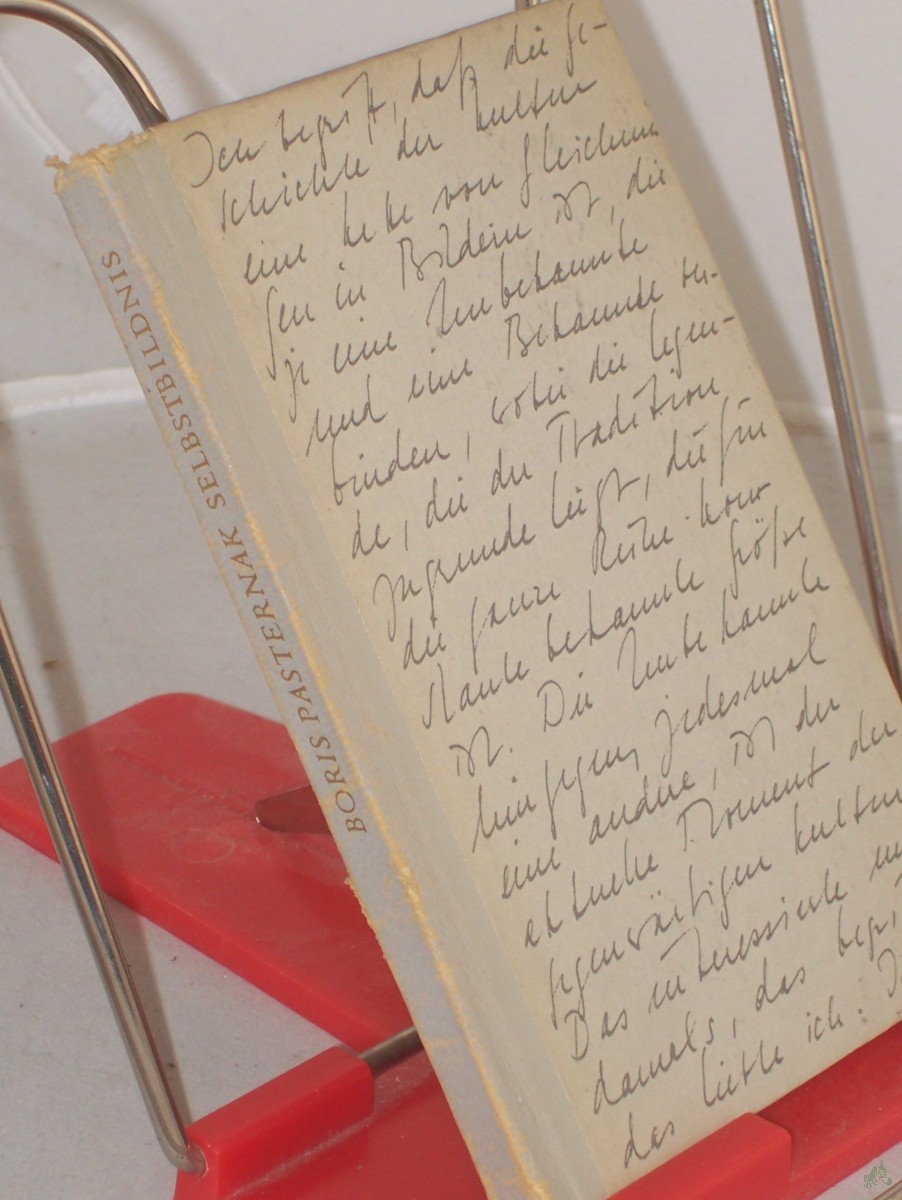 BORIS PASTERNAK SELBSTBILDNIS
Ich begriff, daß die Ge-
schichte der Kultur
eine Kette von Gleichun-
gen in Bildern ist, die
je eine Unbekannte
und eine Bekannte ver-
binden, wobei die Legen-
de, die der Tradition
zugrunde liegt, die für
die ganze Reihe kons-
tante bekannte Größe
ist. Die Unbekannte
hingegen, jedesmal
eine andere, ist der
aktuelle Moment der
gegenwärtigen Kultur
Das interessierte
damals, das
das liebte ich.